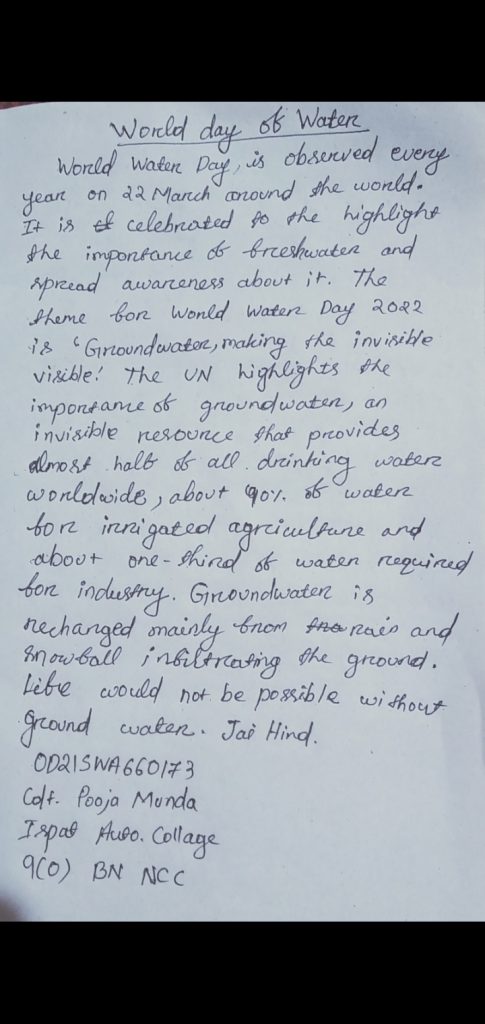 World day of Water
World Water Day, is observed every
year on 22 March around the world.
It is celebrated to the highlight
the importance of freshwater and
spread awareness about it. The
theme for World Water Day 2022
is 'Groundwater, making the invisible
visible.' The UN highlights the
importance of groundwater, an
invisible resource that provides
almost half of all drinking water
worldwide, about 40% of water
for irrigated agriculture and
about one-third of water required
for industry. Groundwater is
recharged mainly from rain and
snowfall infiltrating the ground.
Life would not be possible without
ground water. Jai Hind.
OD21SWA660173
Cdt. Pooja Munda
Ispat Auto. Collage
9(O) BN NCC